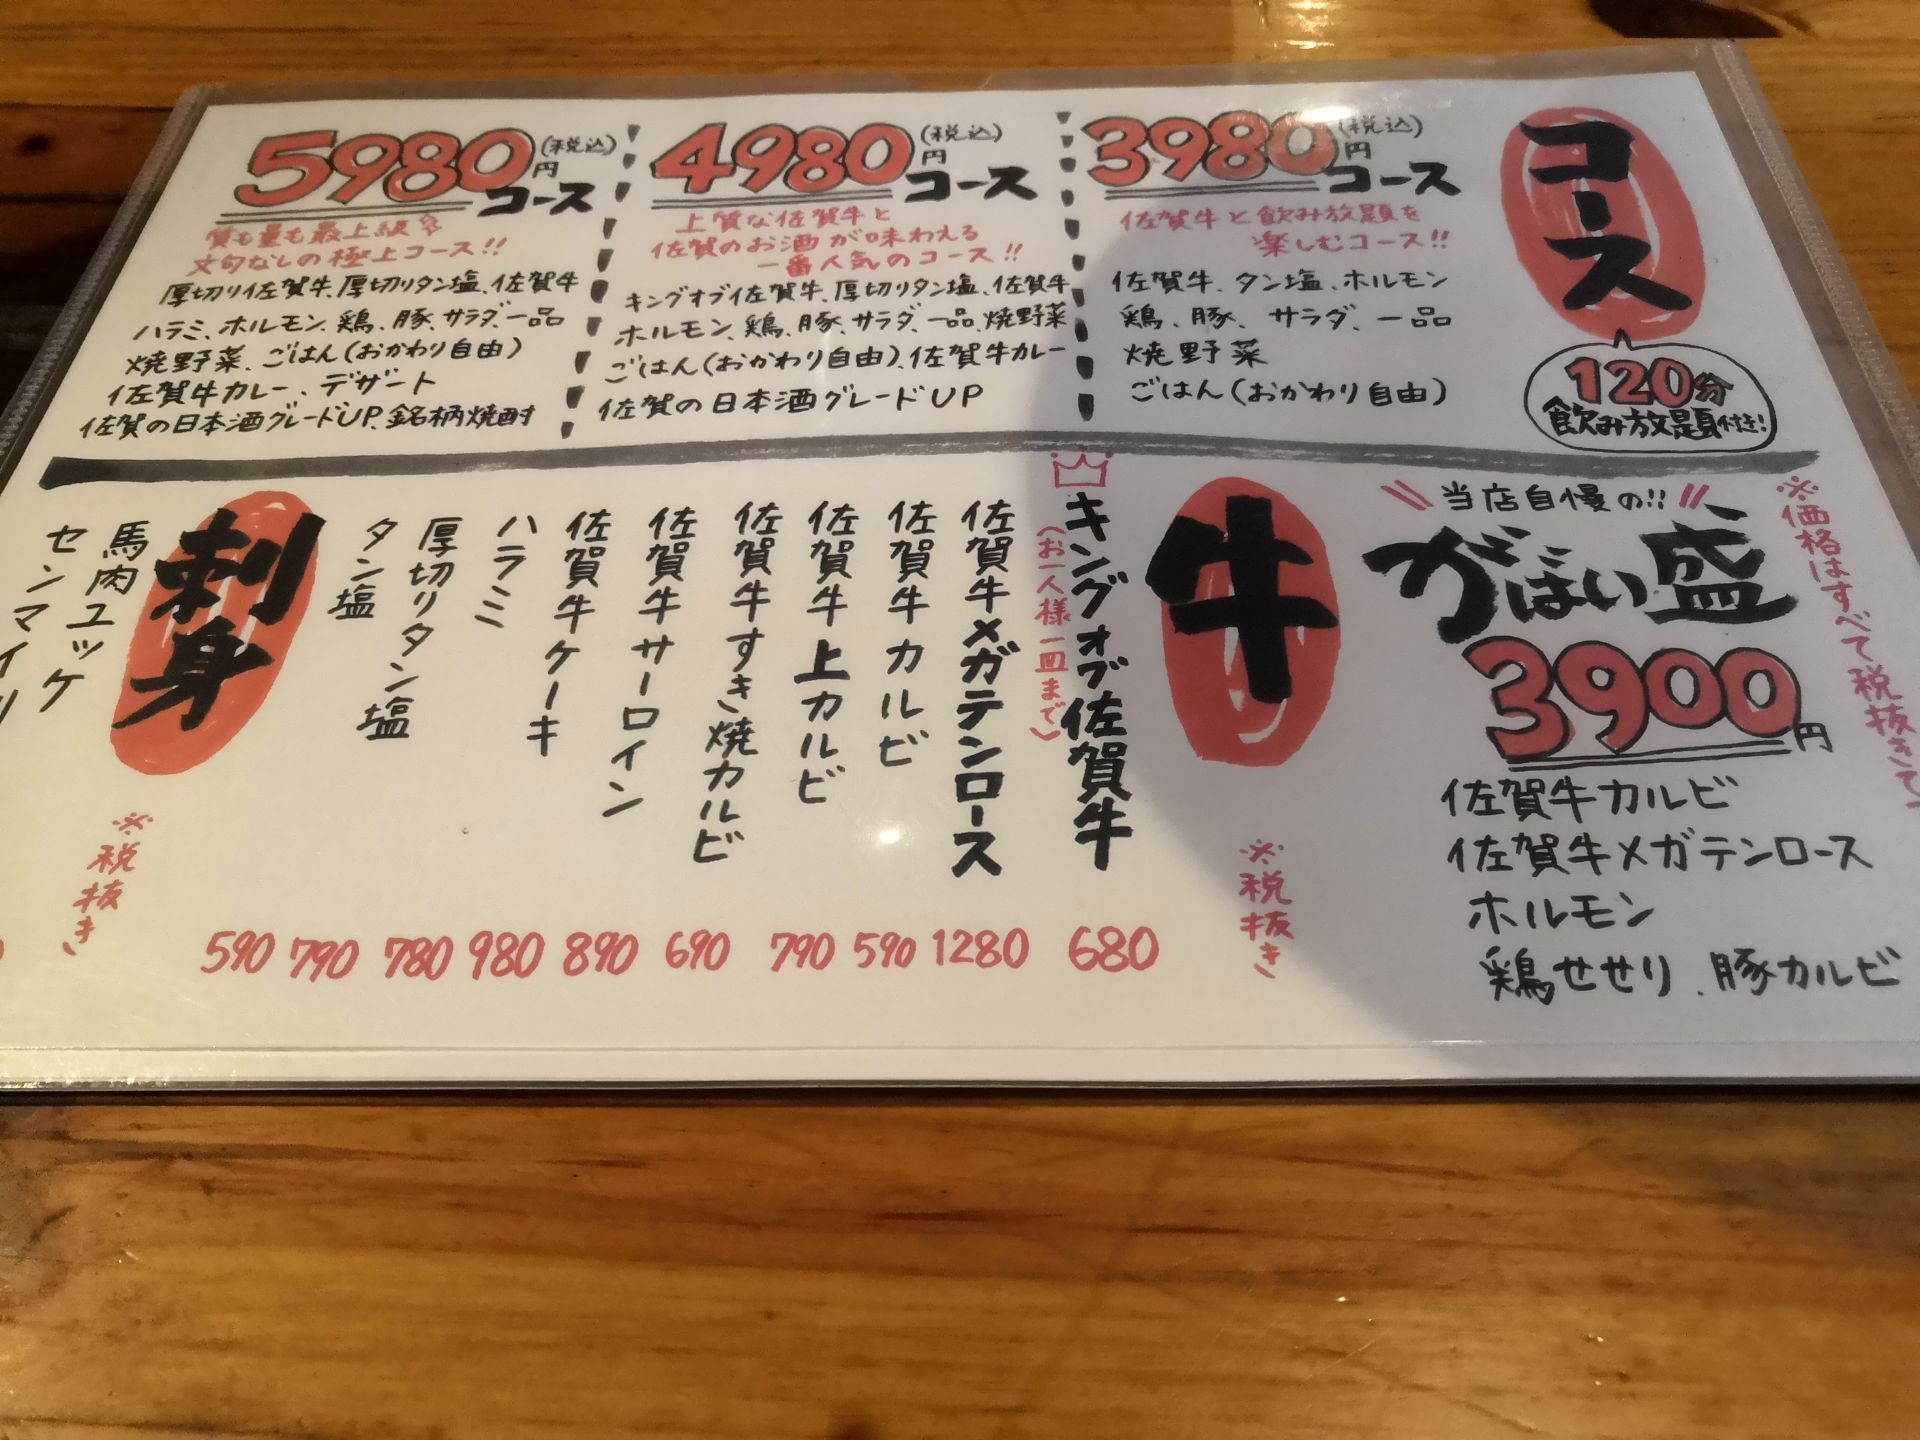 コース
120分
飲み放題付き!
3980円(税込)コース
佐賀牛と飲み放題を
楽しむコース!!
佐賀牛、タン塩、ホルモン
鶏、豚、サラダ、一品
焼野菜
ごはん(おかわり自由)
4980円(税込)コース
上質な佐賀牛と
佐賀のお酒が味わえる
一番人気のコース!!
キングオブ佐賀牛、厚切りタン塩、佐賀牛
ホルモン、鶏、豚、サラダ、一品、焼野菜
ごはん(おかわり自由)、佐賀牛カレー
佐賀の日本酒グレードUP
5980円(税込)コース
質も量も最上級
文句なしの極上コース!!
厚切り佐賀牛、厚切りタン塩、佐賀牛
ハラミ、ホルモン、鶏、豚、サラダ、一品
焼野菜、ごはん(おかわり自由)
佐賀牛カレー、デザート
佐賀の日本酒グレードUP、銘柄焼酎
※価格はすべて税抜きで
当店自慢の!!
がばい盛
3900円
佐賀牛カルビ
佐賀牛メガテンロース
ホルモン
鶏せせり、豚カルビ
牛
※税抜き
キングオブ佐賀牛
(お一人様一皿まで)
680
佐賀牛メガテンロース
1280
佐賀牛カルビ
590
佐賀牛上カルビ
790
佐賀牛すき焼カルビ
690
佐賀牛サーロイン
890
佐賀牛ケーキ
980
ハラミ
780
厚切りタン塩
790
タン塩
590
刺身
※税抜き
馬肉ユッケ
センマイ